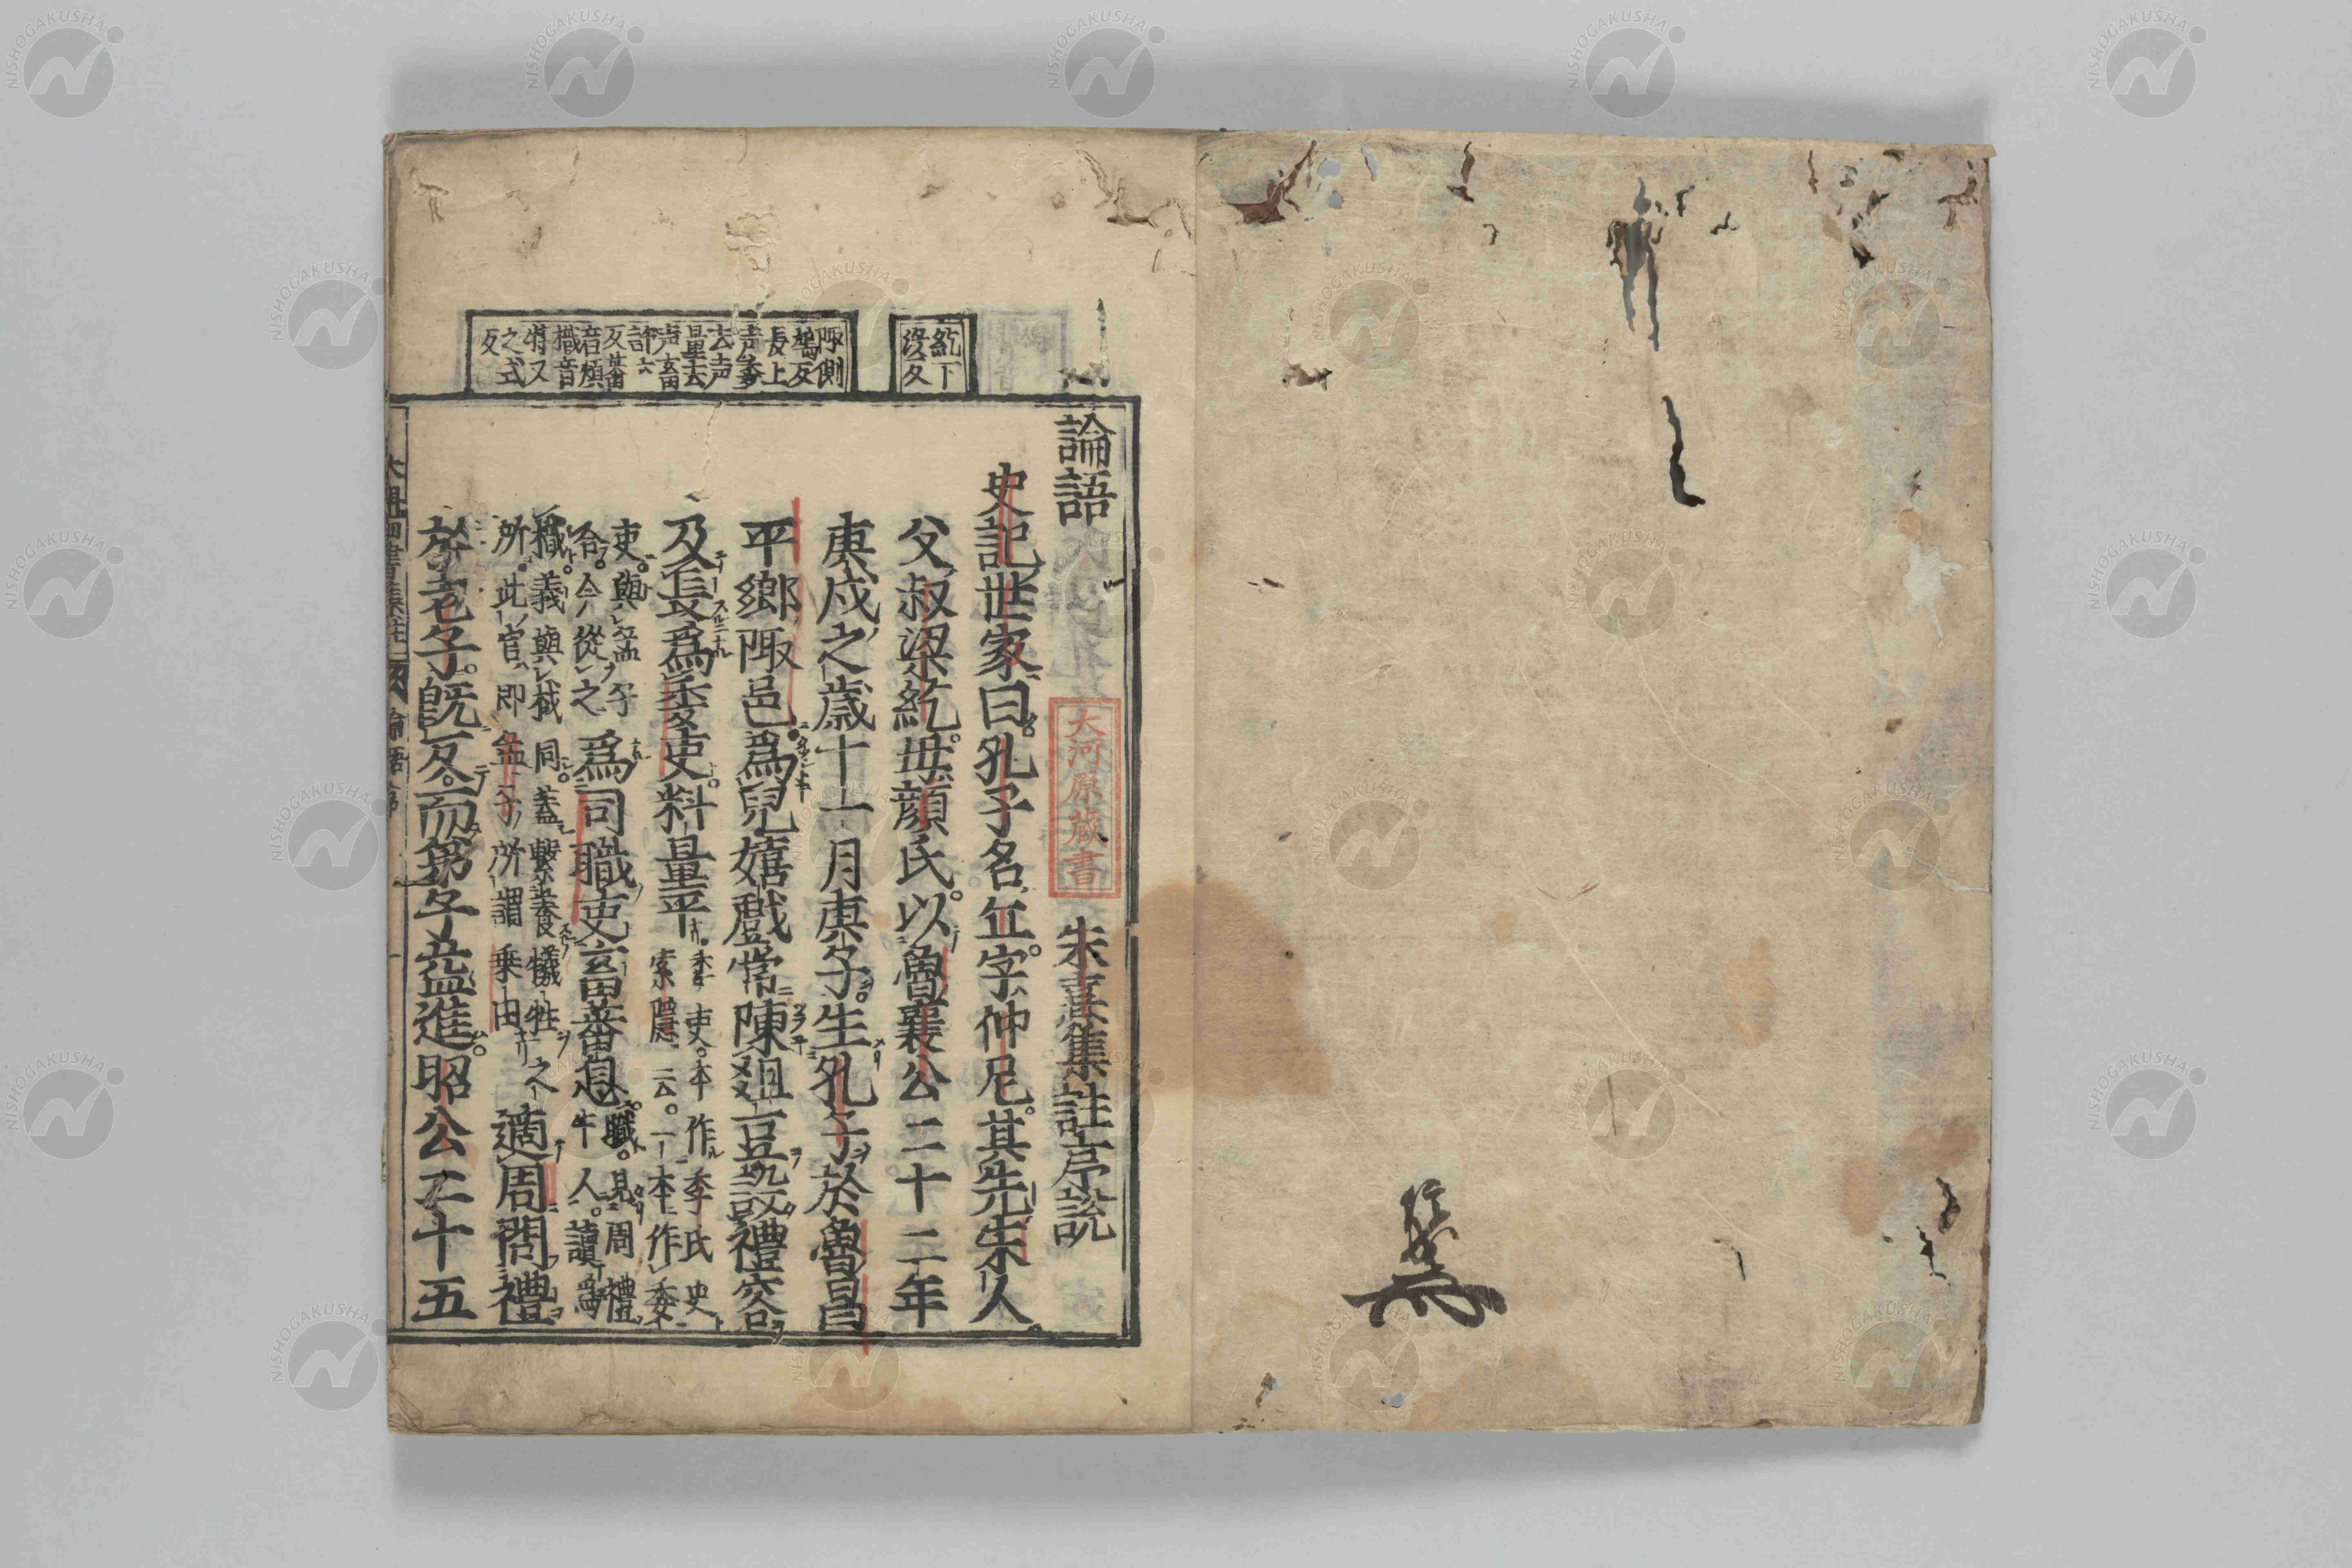 論語 朱熹集註序説
大河原蔵書
史記世家曰孔子名丘字仲尼其先宋人
父叔梁紇母顔氏以魯襄公二十二年
庚戌之歳十一月庚子生孔子於魯昌
平郷陬邑爲兒嬉戲常陳俎豆設禮容
及長爲委吏料量平 委吏本作季氏史
索隱云一本作委
吏與孟子
合今從之 爲司職吏畜蕃息 職見周禮
牛人讀爲
樴義與杙同蓋繋養犧牲之
所此官即孟子所謂乗田 適周問禮
於老子既反而弟子益進昭公二十五
紇下
没反
陬側
鳩反
長上
声委
去声
量去
声畜
許六
反蕃
音煩
樴音
特又
之式
反
NISHOGAKUSHA